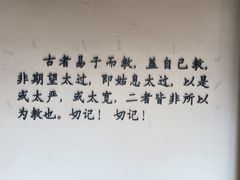 古者易子而教，盖自己教，
非期望太过，即姑息太过，以是
或太严，或太宽，二者皆非所以
为教也。切记！切记！